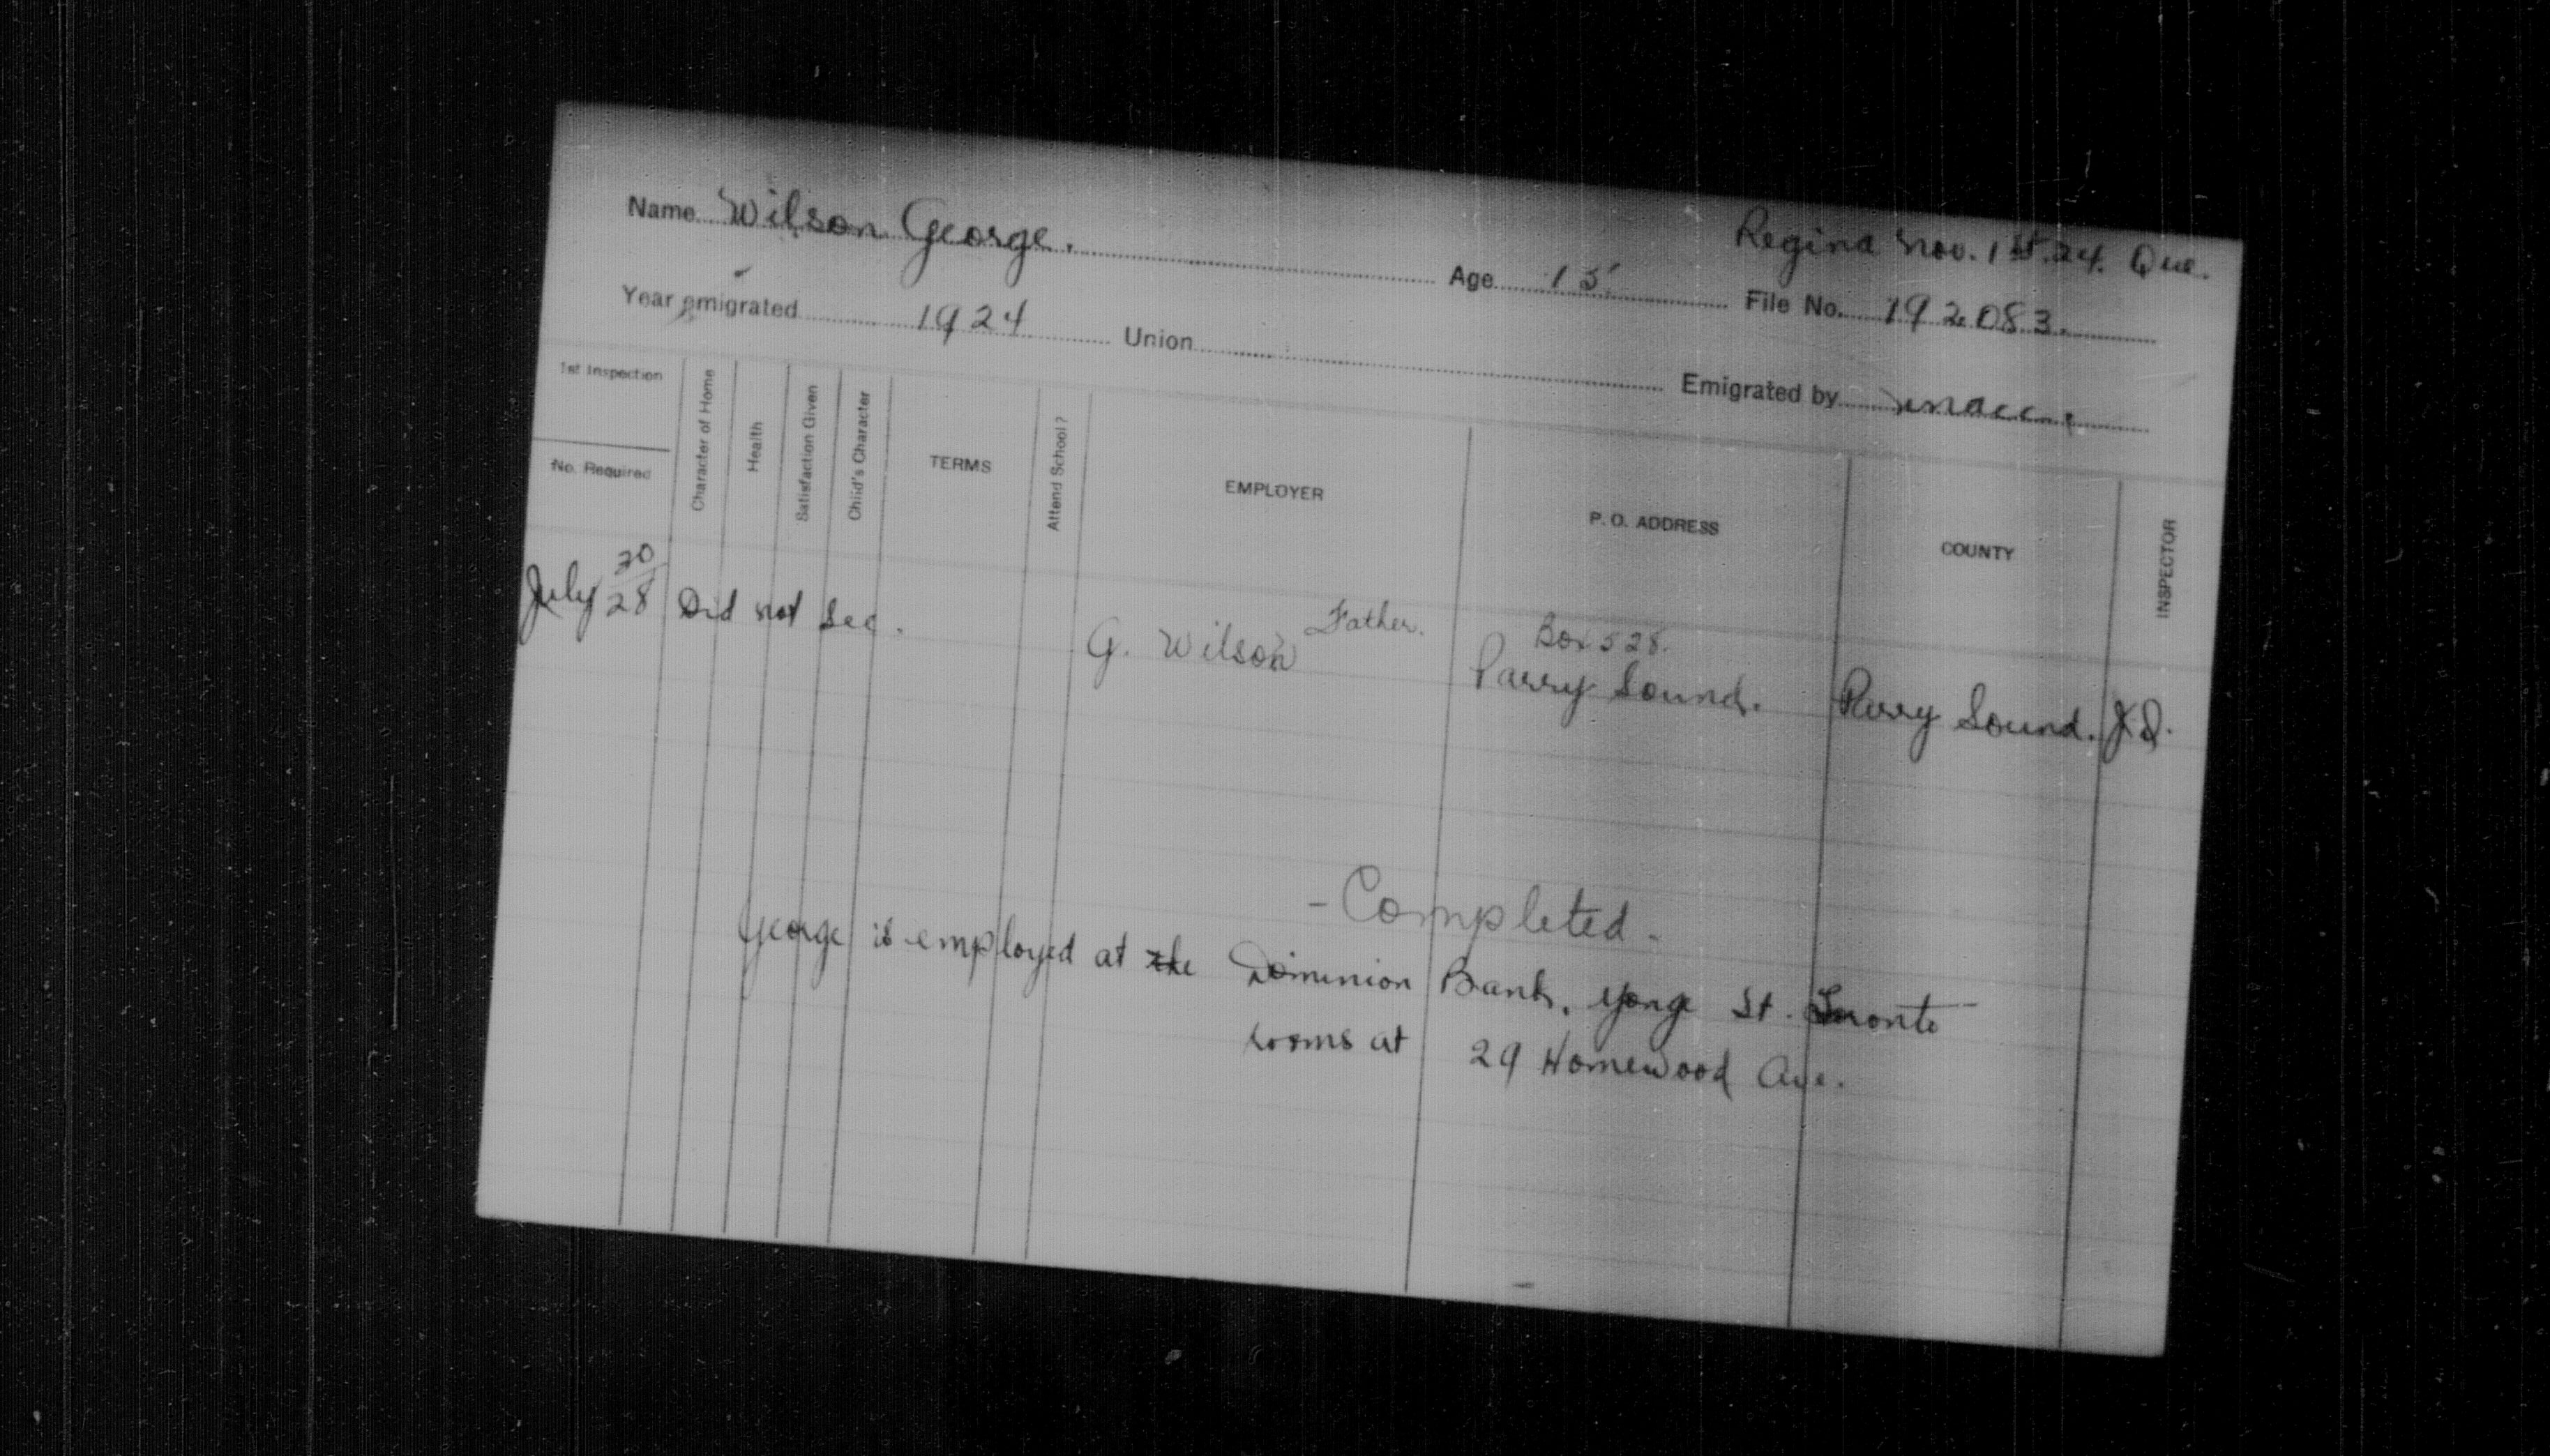 Regina Nov. 1st. 24. Que.
Name Wilson George. Age 15. File No. 192083.
Year emigrated 1924 Union Emigrated by
1st Inspection
No. Required
Character of Home
Health
Satisfaction Given
Child's Character
TERMS
Attend School?
EMPLOYER
P. O. ADDRESS
COUNTY
INSPECTOR
July 30/28 Did not see. G. Wilson Father. Box 528. Parry Sound. Parry Sound.
- Completed -
George is employed at the Dominion Bank, Yonge St. Toronto
rooms at 29 Homewood Ave.